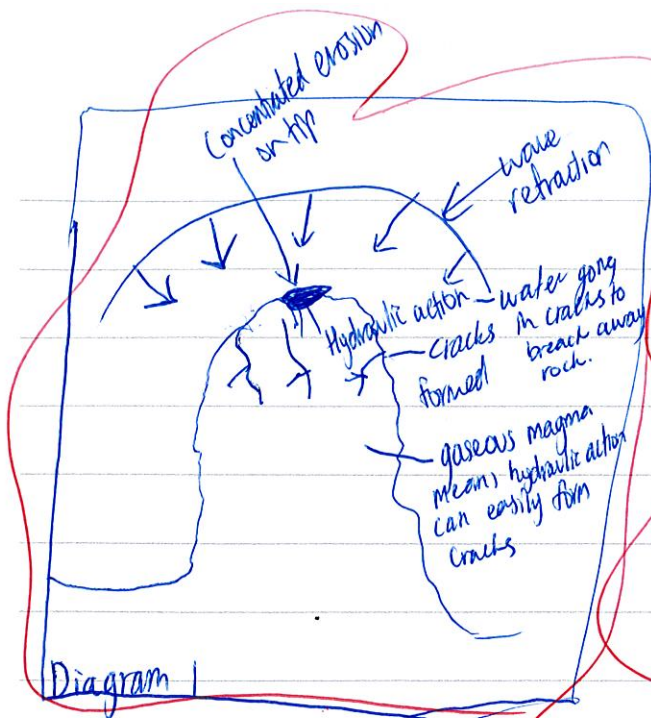 Concentrated erosion
on tip
wave
retraction
Hydraulic action - water gong
in cracks to
breach away
rock.
cracks
formed
gaseous magma
means hydraulic action
can easily form
cracks
Diagram 1